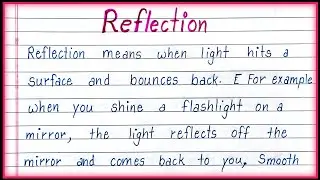 Reflection
Reflection means when light hits a
surface and bounces back. E For example
when you shine a flashlight on a
mirror, the light reflects off the
mirror and comes back to you, Smooth